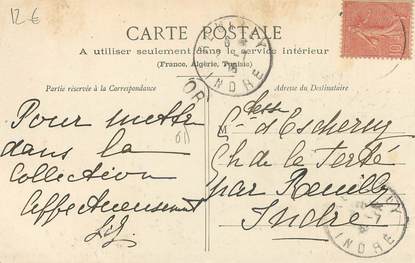 12 €
CARTE POSTALE
A utiliser seulement dans le service intérieur
(France, Algérie, Tunisie)
Partie réservée à la Correspondance
Adresse du Destinataire
Pour mettre
dans la
Collection
Affectueusement
M
Ctesse d'Escherny
Ch de la Ferté
par Reuilly
Indre
INDRE
OR
INDRE